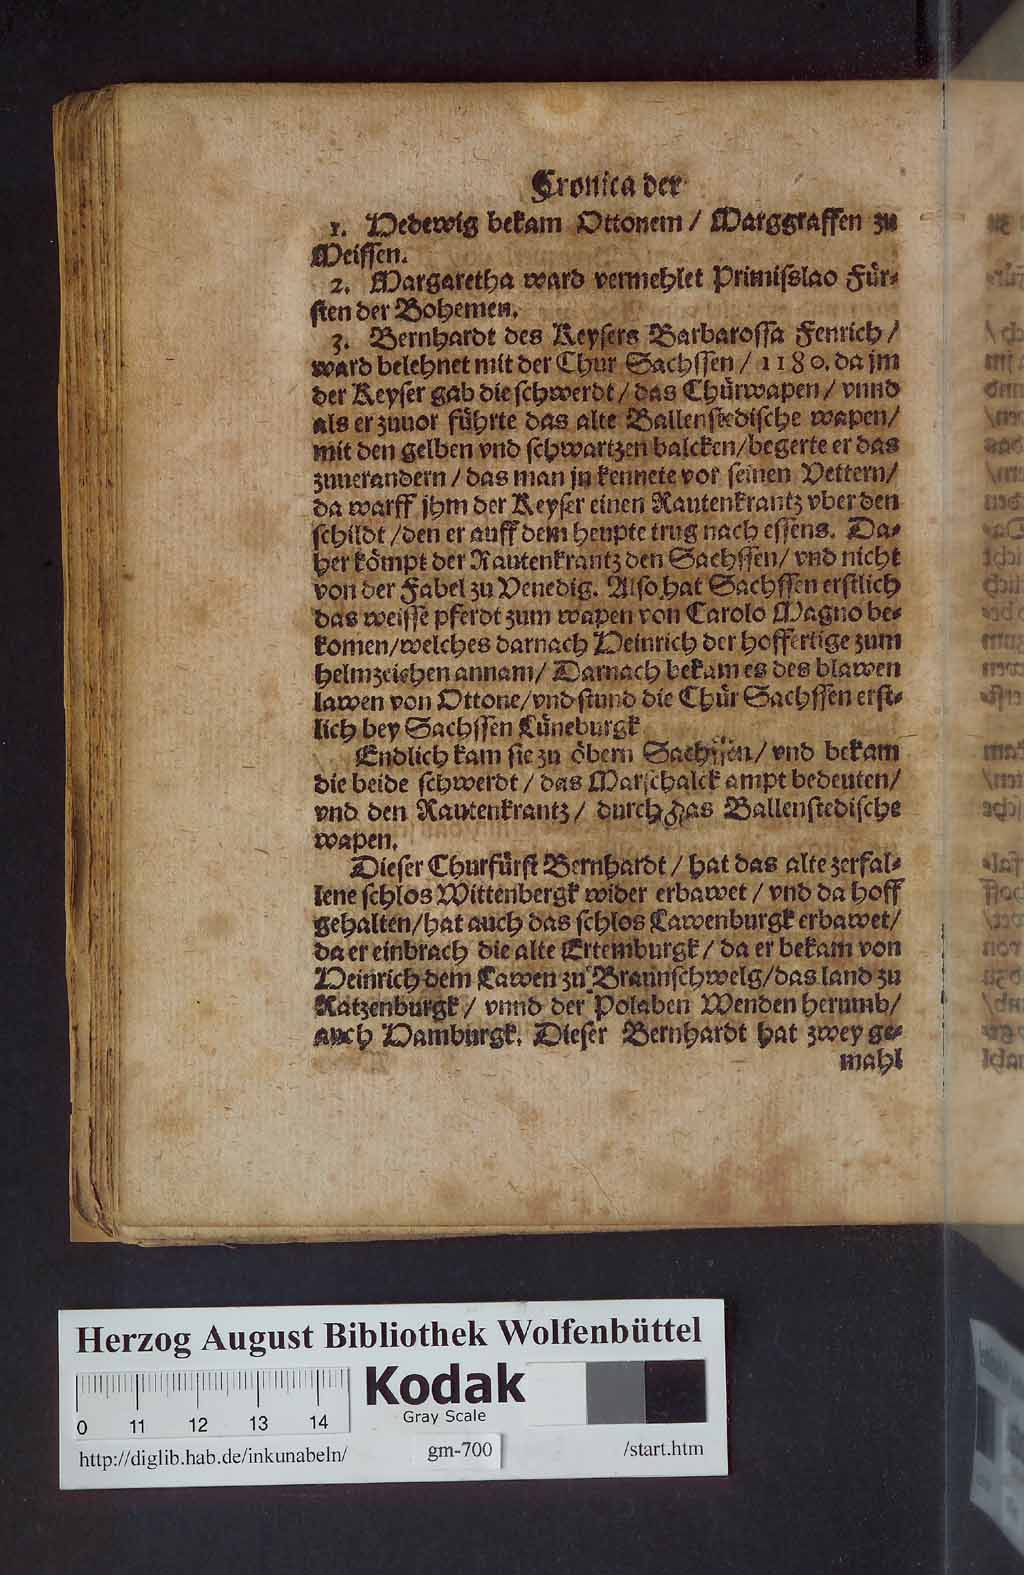 Cronica der
1. Hedewig bekam Ottonem / Marggraffen zu
Meiſſen.
2. Margaretha ward vermehlet Primiſslao Fuͤr⸗
ſten der Bohemen.
3. Bernhardt des Keyſers Barbaroſſa Fenrich /
ward belehnet mit der Chur Sachſſen / 1180. da jm
der Keyſer gab die ſchwerdt / das Chuͤrwapen / vnnd
als er zuuor fuͤhrte das alte Ballenſtediſche wapen /
mit den gelben vnd ſchwartzen balcken / begerte er das
zuuerandern / das man jn kennete vor ſeinen Vettern /
da warff jhm der Keyſer einen Rautenkrantz vber den
ſchildt / den er auff dem heupte trug nach eſſens. Da⸗
her koͤmpt der Rautenkrantz den Sachſſen / vnd nicht
von der Fabel zu Venedig. Alſo hat Sachſſen erſtlich
das weiſſe pferdt zum wapen von Carolo Magno be⸗
komen / welches darnach Heinrich der hoffertige zum
helmzeichen annam / Darnach bekam es des blawen
lawen von Ottone / vnd ſtund die Chuͤr Sachſſen erſt⸗
lich bey Sachſſen Luͤneburgk
Endlich kam ſie zu oͤbern Sachſſen / vnd bekam
die beide ſchwerdt / das Marſchalck ampt bedeuten /
vnd den Rautenkrantz / durch das Ballenſtediſche
wapen.
Dieſer Churfuͤrſt Bernhardt / hat das alte zerfal⸗
lene ſchlos Wittenbergk wider erbawet / vnd da hoff
gehalten / hat auch das ſchlos Lawenburgk erbawet /
da er einbrach die alte Ertemburgk / da er bekam von
Heinrich dem Lawen zu Braunſchweig / das land zu
Ratzenburgk / vnnd der Polaben Wenden herumb /
auch Hamburgk. Dieſer Bernhardt hat zwey ge⸗
mahl
Herzog August Bibliothek Wolfenbüttel
0 11 12 13 14
Kodak
Gray Scale
http://diglib.hab.de/inkunabeln/ gm-700 /start.htm